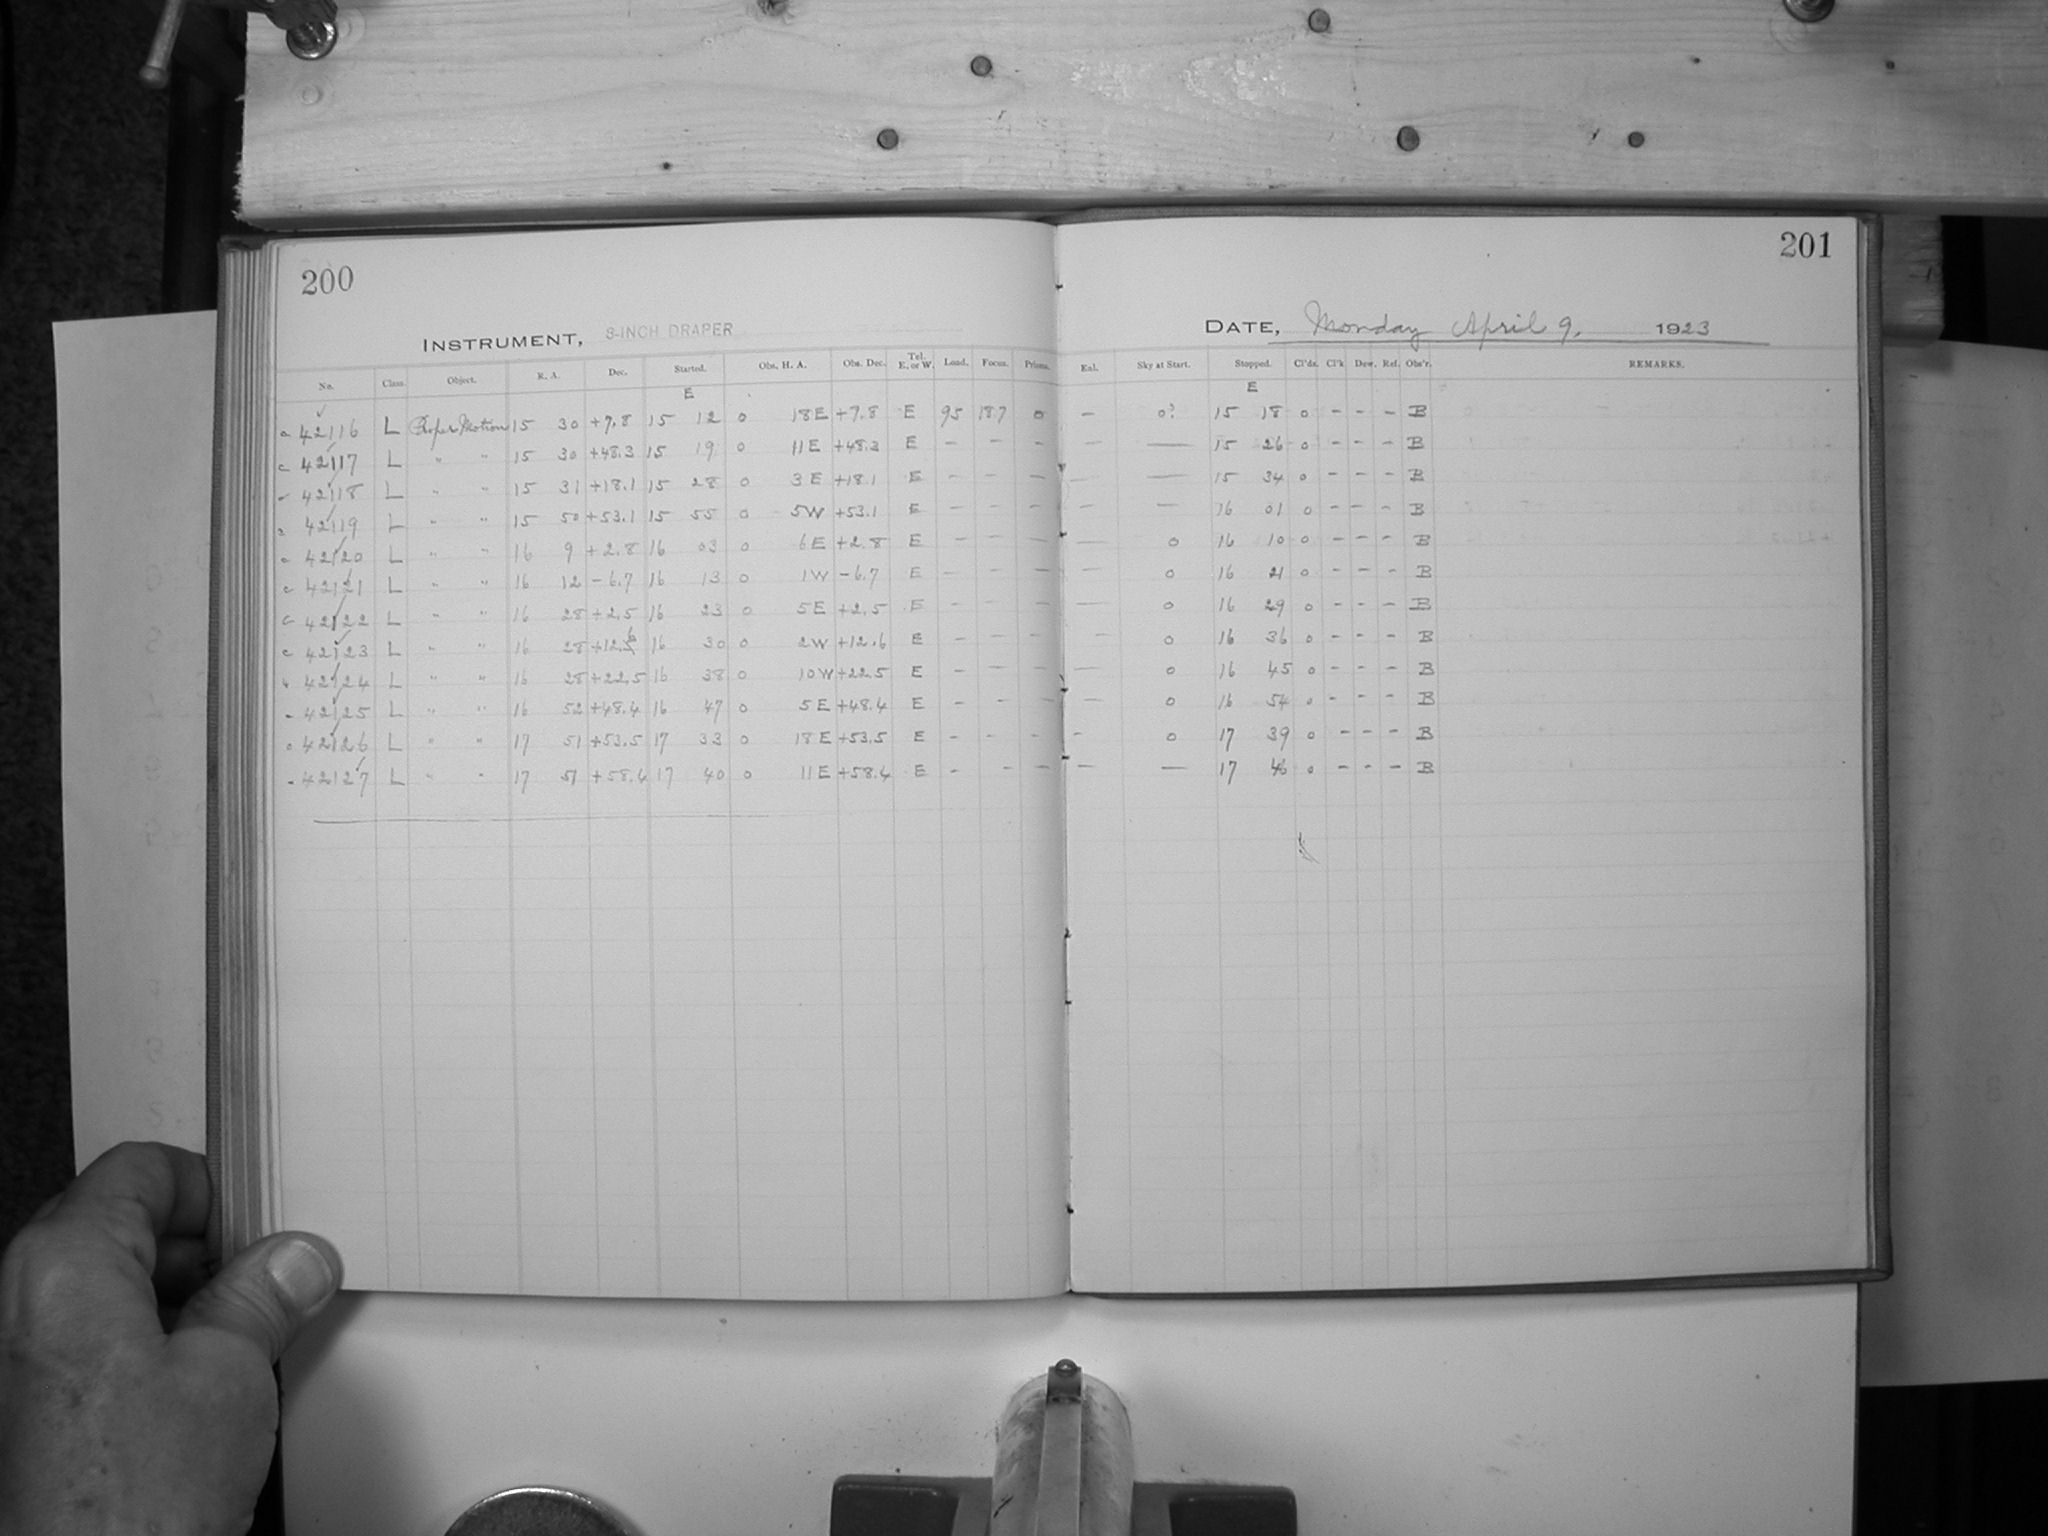 200
INSTRUMENT, 8-INCH DRAPER
No. Class. Object. R. A. Dec. Started. Obs. H. A. Obs. Dec. Tel. E. or W. Load. Focus. Prisms.
E
42116 L Proper Motion 15 30 +7.8 15 12 0 18E +7.8 E 95 187 0
42117 L " " 15 30 +48.3 15 19 0 11E +48.3 E - - -
42118 L " " 15 31 +18.1 15 28 0 3E +18.1 E - - -
42119 L " " 15 50 +53.1 15 55 0 5W +53.1 E - - -
42120 L " " 16 9 +2.8 16 03 0 6E +2.8 E - - -
42121 L " " 16 12 -6.7 16 13 0 1W -6.7 E - - -
42122 L " " 16 28 +2.5 16 23 0 5E +2.5 E - - -
42123 L " " 16 28 +12.6 16 30 0 2W +12.6 E - - -
42124 L " " 16 28 +22.5 16 38 0 10W +22.5 E - - -
42125 L " " 16 52 +48.4 16 47 0 5E +48.4 E - - -
42126 L " " 17 51 +53.5 17 33 0 18E +53.5 E - - -
42127 L " " 17 51 +58.4 17 40 0 11E +58.4 E - - -
201
DATE, Monday April 9, 1923
Enl. Sky at Start. Stopped. Cl'ds. Cl'k Dew. Ref. Obs'r. REMARKS.
E
- 0? 15 18 0 - - - B
- — 15 26 0 - - - B
- — 15 34 0 - - - B
- — 16 01 0 - - - B
- 0 16 10 0 - - - B
- 0 16 21 0 - - - B
- 0 16 29 0 - - - B
- 0 16 36 0 - - - B
- 0 16 45 0 - - - B
- 0 16 54 0 - - - B
- 0 17 39 0 - - - B
- — 17 46 0 - - - B